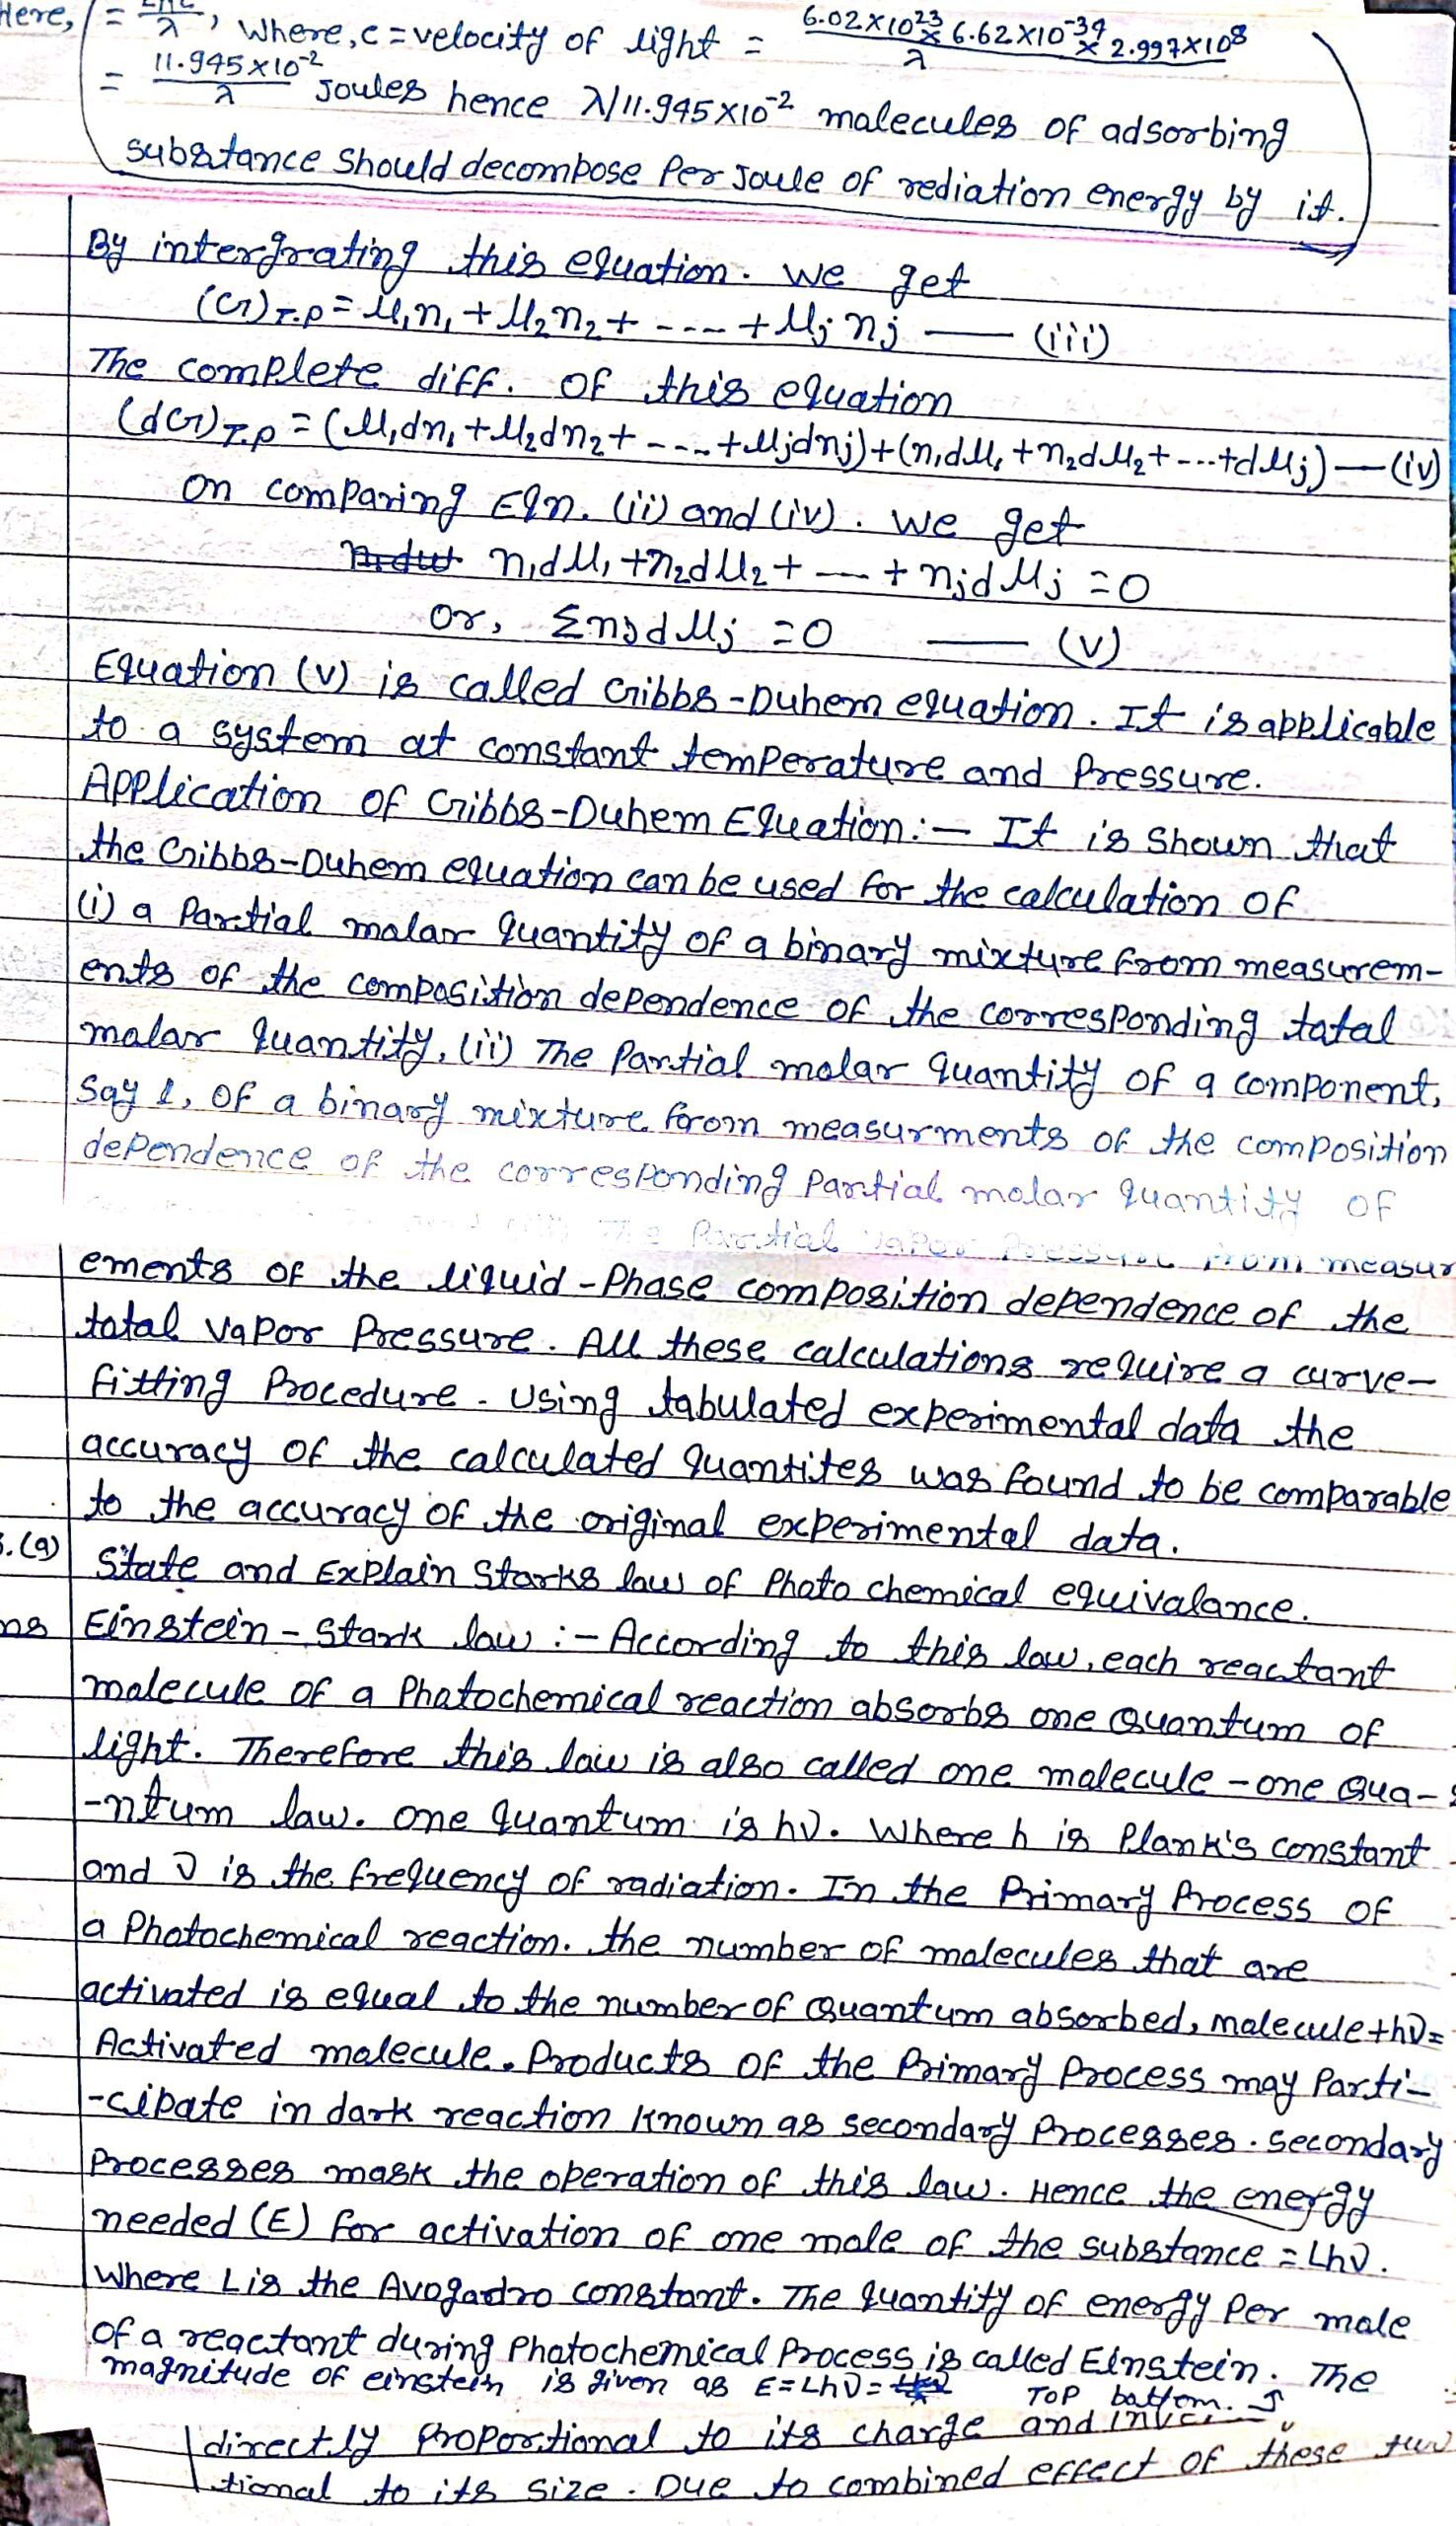 Here, = Lhc/λ, Where, c = velocity of light = 6.02×10²³ × 6.62×10⁻³⁴ × 2.997×10⁸/λ
= 11.945×10⁻²/λ Joules hence λ/11.945×10⁻² malecules of adsorbing
substance should decompose Per Joule of rediation energy by it.
By intergrating this equation. we get
(G)T.P = μ₁n₁ + μ₂n₂ + ---- + μj nj —— (iii)
The complete diff. of this equation
(dG)T.P = (μ₁dn₁ + μ₂dn₂ + ---- + μjdnj) + (n₁dμ₁ + n₂dμ₂ + --- + dμj) — (iv)
on comparing Eqn. (ii) and (iv). we get
n₁dμ₁ + n₂dμ₂ + --- + njdμj = 0
or, Σnjdμj = 0 —— (v)
Equation (v) is called Gibbs-Duhem equation. It is applicable
to a system at constant temperature and Pressure.
Application of Gibbs-Duhem Equation:— It is shown that
the Gibbs-Duhem equation can be used for the calculation of
(i) a Partial malar quantity of a binary mixture from measurem-
ents of the composition dependence of the corresponding tatal
malar quantity, (ii) The Partial molar quantity of a component,
Say 1, of a binary mixture from measurments of the composition
dependence of the corresponding Partial molar quantity of
the Partial vapor Pressure from measur
ements of the liquid-Phase composition dependence of the
tatal vapor Pressure. All these calculations require a curve-
fitting Procedure. Using tabulated experimental data the
accuracy of the calculated quantites was found to be comparable
to the accuracy of the original experimental data.
.(a) State and Explain Starks law of Phato chemical equivalance.
ns Einstein-Stark law :- According to this law, each reactant
malecule of a Phatochemical reaction absorbs one quantum of
light. Therefore this law is also called one malecule-one qua-
-ntum law. one quantum is hν. Where h is Plank's constant
and ν is the frequency of radiation. In the Primary Process of
a Photochemical reaction. the number of malecules that are
activated is equal to the number of quantum absorbed, malecule+hν=
Activated molecule. Products of the Primary Process may Parti-
-cipate in dark reaction known as secondary Processes. secondary
Processes mask the operation of this law. Hence the energy
needed (E) for activation of one male of the substance = Lhν.
Where L is the Avogadro constant. The quantity of energy Per male
of a reactant during Phatochemical Process is called Einstein. The
magnitude of einstein is given as E=Lhν=
TOP battom.
directly Proportional to its charge and
tional to its size. Due to combined effect of these two